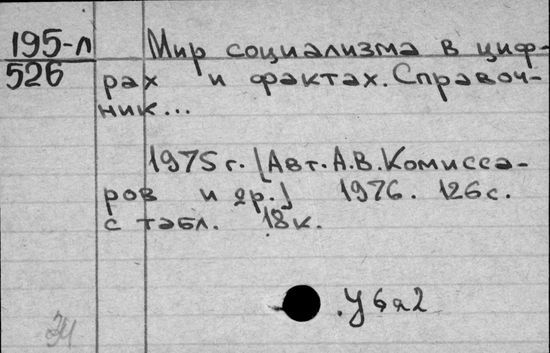 195-л
526
Мир социализма в циф-
рах и фактах. Справоч-
ник...
1975 г. [Авт. А.В. Комисса-
ров и др.] 1976. 126 с.
с табл. 18 к.
.У6я2
34